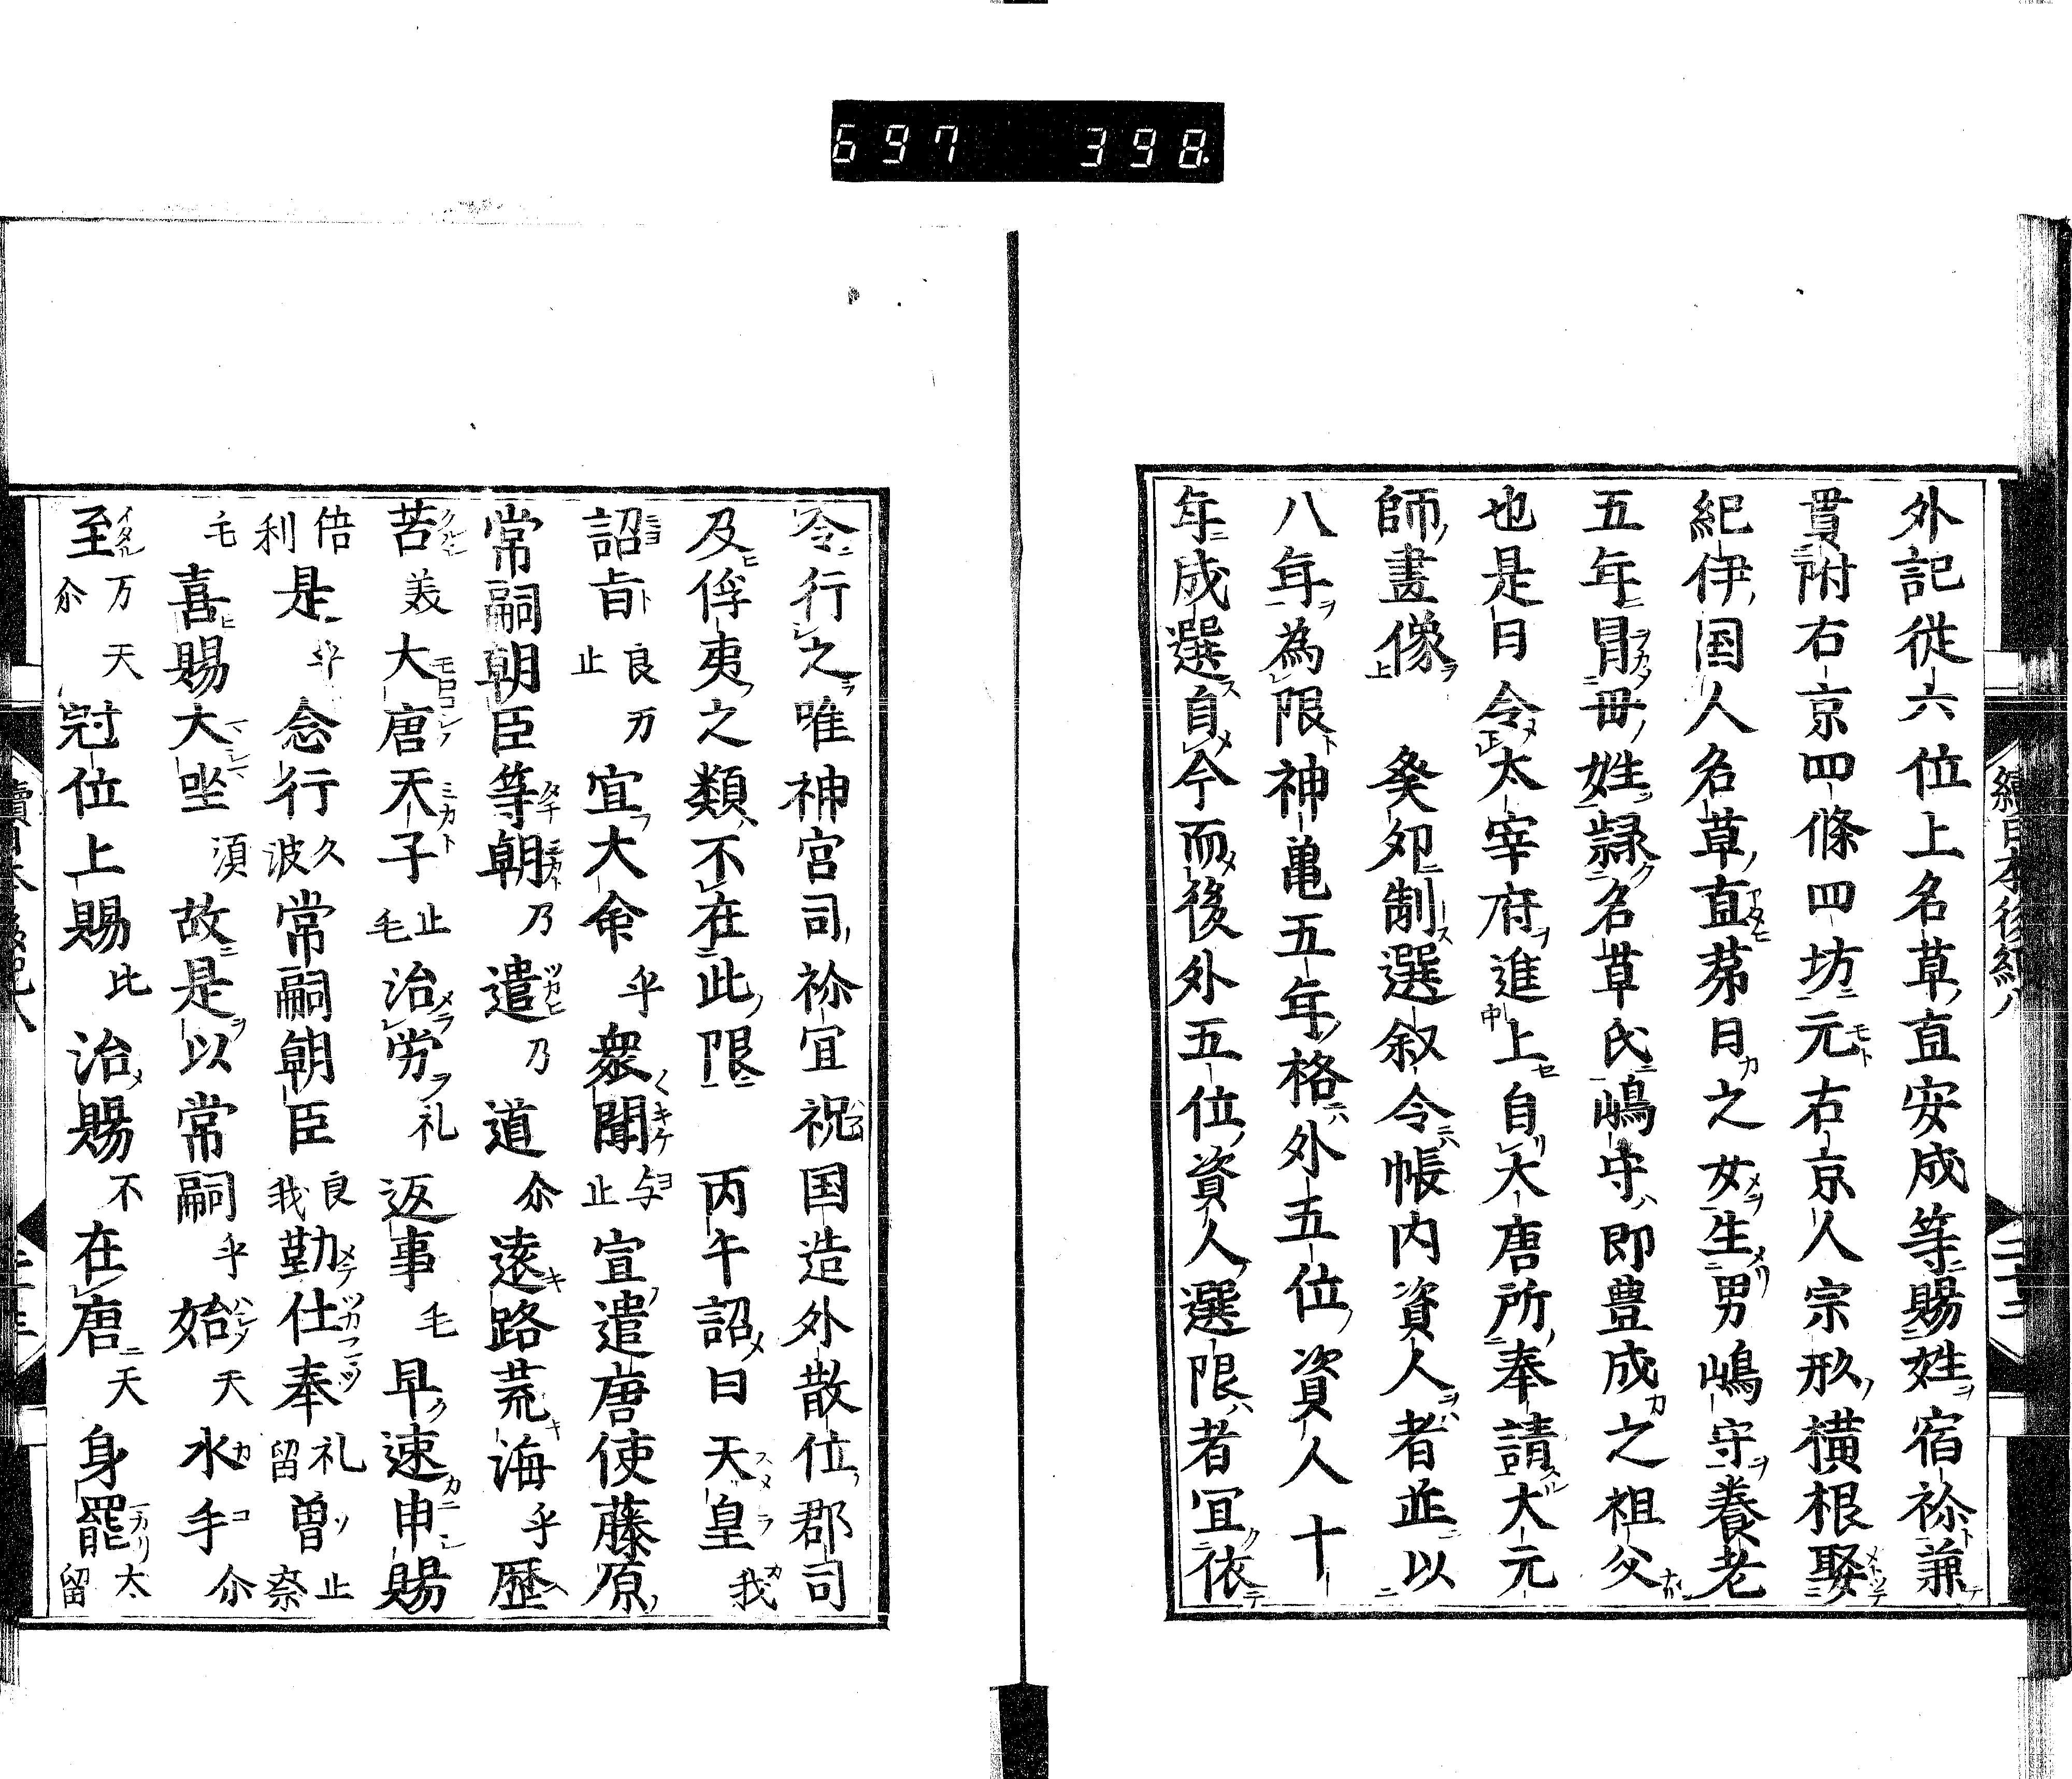 697 398.
外記従六位上名草直安成等賜姓宿祢兼
貫附右京四條四坊元右京人宗形横根娶
紀伊国人名草直苐日之女生男嶋守養老
五年冐母姓隷名草氏嶋守即豊成之祖父
也是日令太宰府進上自大唐所奉請大元
師畫像　癸夘制選叙令帳内資人者並以
八年為限神亀五年格外五位資人十
年成選自今而後外五位資人選限者宜依
令行之唯神宮司祢宜祝国造外散位郡司
及俘夷之類不在此限　丙午詔曰天皇我
詔旨良万止宣大命乎衆聞与止宣遣唐使藤原
常嗣朝臣等朝乃遣乃道尒遠路荒海乎歴
苦美大唐天子止毛治労礼返事毛早速申賜
倍利是乎念行久波常嗣朝臣良我勤仕奉礼留曽止奈
毛喜賜大坐湏故是以常嗣乎始天水手尒
至万天尒冠位上賜比治賜不在唐天身罷太留